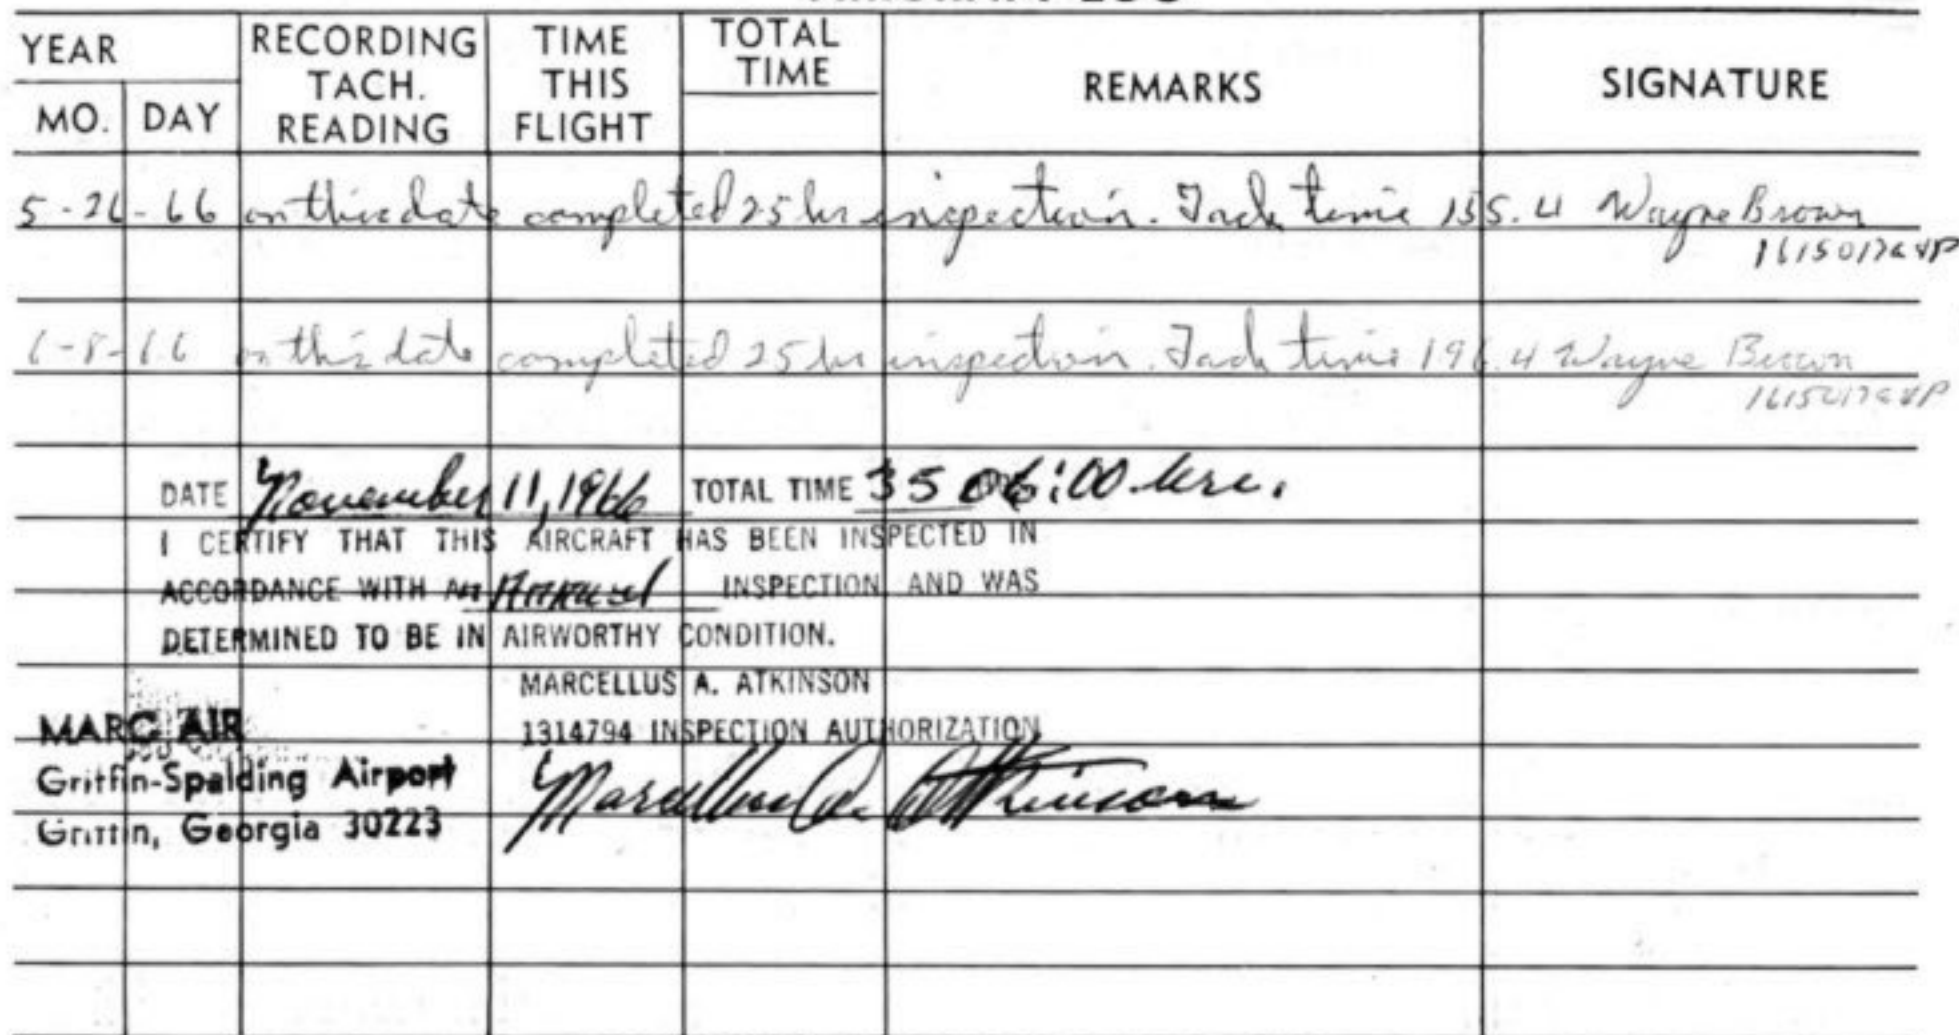 YEAR
MO. DAY
RECORDING TACH. READING
TIME THIS FLIGHT
TOTAL TIME
REMARKS
SIGNATURE
5-26-66 on this date completed 25 hr inspection. Tach time 155.4 Wayne Brown
6-8-66 on this date completed 25 hr inspection. Tach time 196.4 Wayne Brown
DATE November 11, 1966 TOTAL TIME 3506:00 hrs.
I CERTIFY THAT THIS AIRCRAFT HAS BEEN INSPECTED IN
ACCORDANCE WITH AN Annual INSPECTION AND WAS
DETERMINED TO BE IN AIRWORTHY CONDITION.
MARCELLUS A. ATKINSON
1314794 INSPECTION AUTHORIZATION
Marcellus A. Atkinson
MARC AIR
Griffin-Spalding Airport
Griffin, Georgia 30223